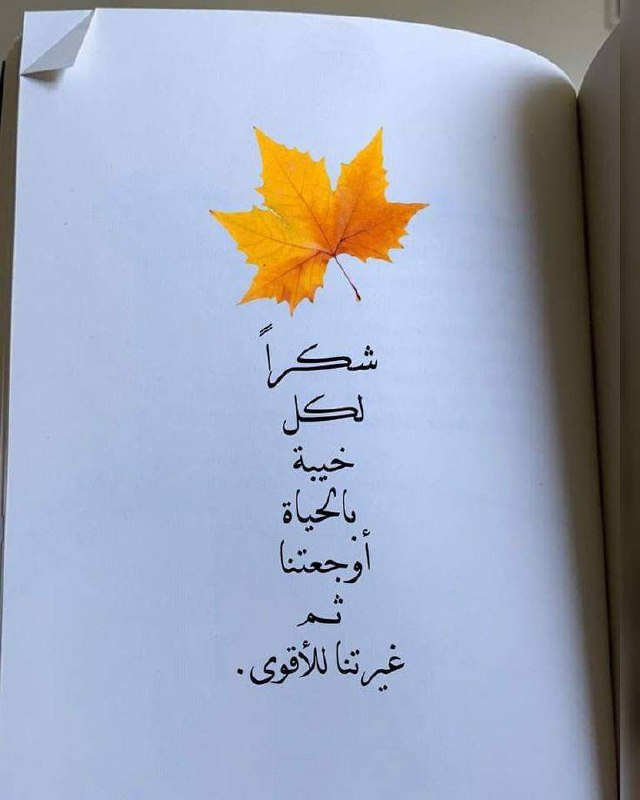 شكراً
لكل
خيبة
بالحياة
أوجعتنا
ثم
غيرتنا للأقوى.